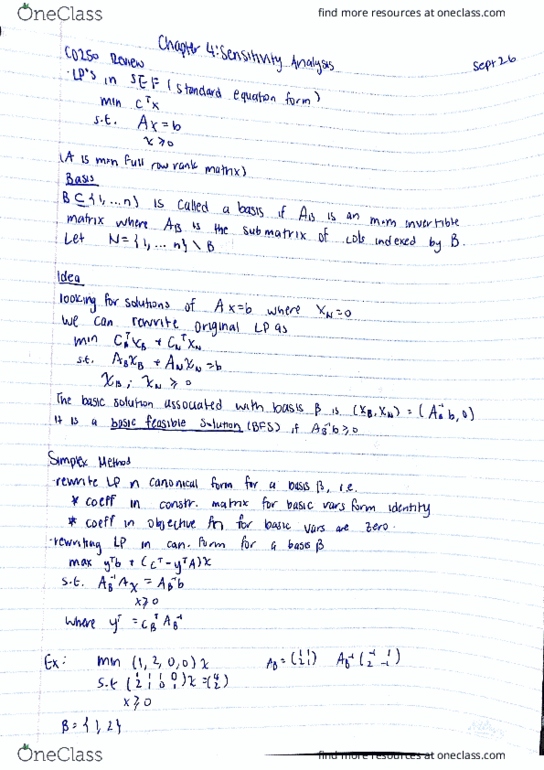 OneClass
find more resources at oneclass.com
Chapter 4: Sensitivity Analysis
Sept 26
CO250 Review
·LP's in SEF (standard equation form)
min cᵀx
s.t. Ax = b
x ≥ 0
(A is m×n full row rank matrix)
Basis
B ⊆ {1, ... n} is called a basis if A_B is an m×m invertible
matrix where A_B is the submatrix of cols indexed by B.
Let N = {1, ... n} \ B
Idea
looking for solutions of Ax=b where x_N=0
we can rewrite original LP as
min C_Bᵀx_B + C_Nᵀx_N
s.t. A_Bx_B + A_Nx_N = b
x_B, x_N ≥ 0
The basic solution associated with basis β is (x_B, x_N) = (A_B⁻¹b, 0)
It is a basic feasible solution (BFS) if A_B⁻¹b ≥ 0
Simplex Method
·rewrite LP in canonical form for a basis β, i.e.
* coeff in constr. matrix for basic vars form identity
* coeff in objective fn for basic vars are zero.
·rewriting LP in can. form for a basis β
max yᵀb + (cᵀ - yᵀA)x
s.t. A_B⁻¹Ax = A_B⁻¹b
x ≥ 0
where yᵀ = c_Bᵀ A_B⁻¹
Ex: min (1, 2, 0, 0) x A_B = (1 1; 2 1) A_B⁻¹ (-1 1; 2 -1)
s.t (1 1 1 0; 2 1 0 1) x = (4; 2)
x ≥ 0
B = {1, 2}
OneClass
find more resources at oneclass.com